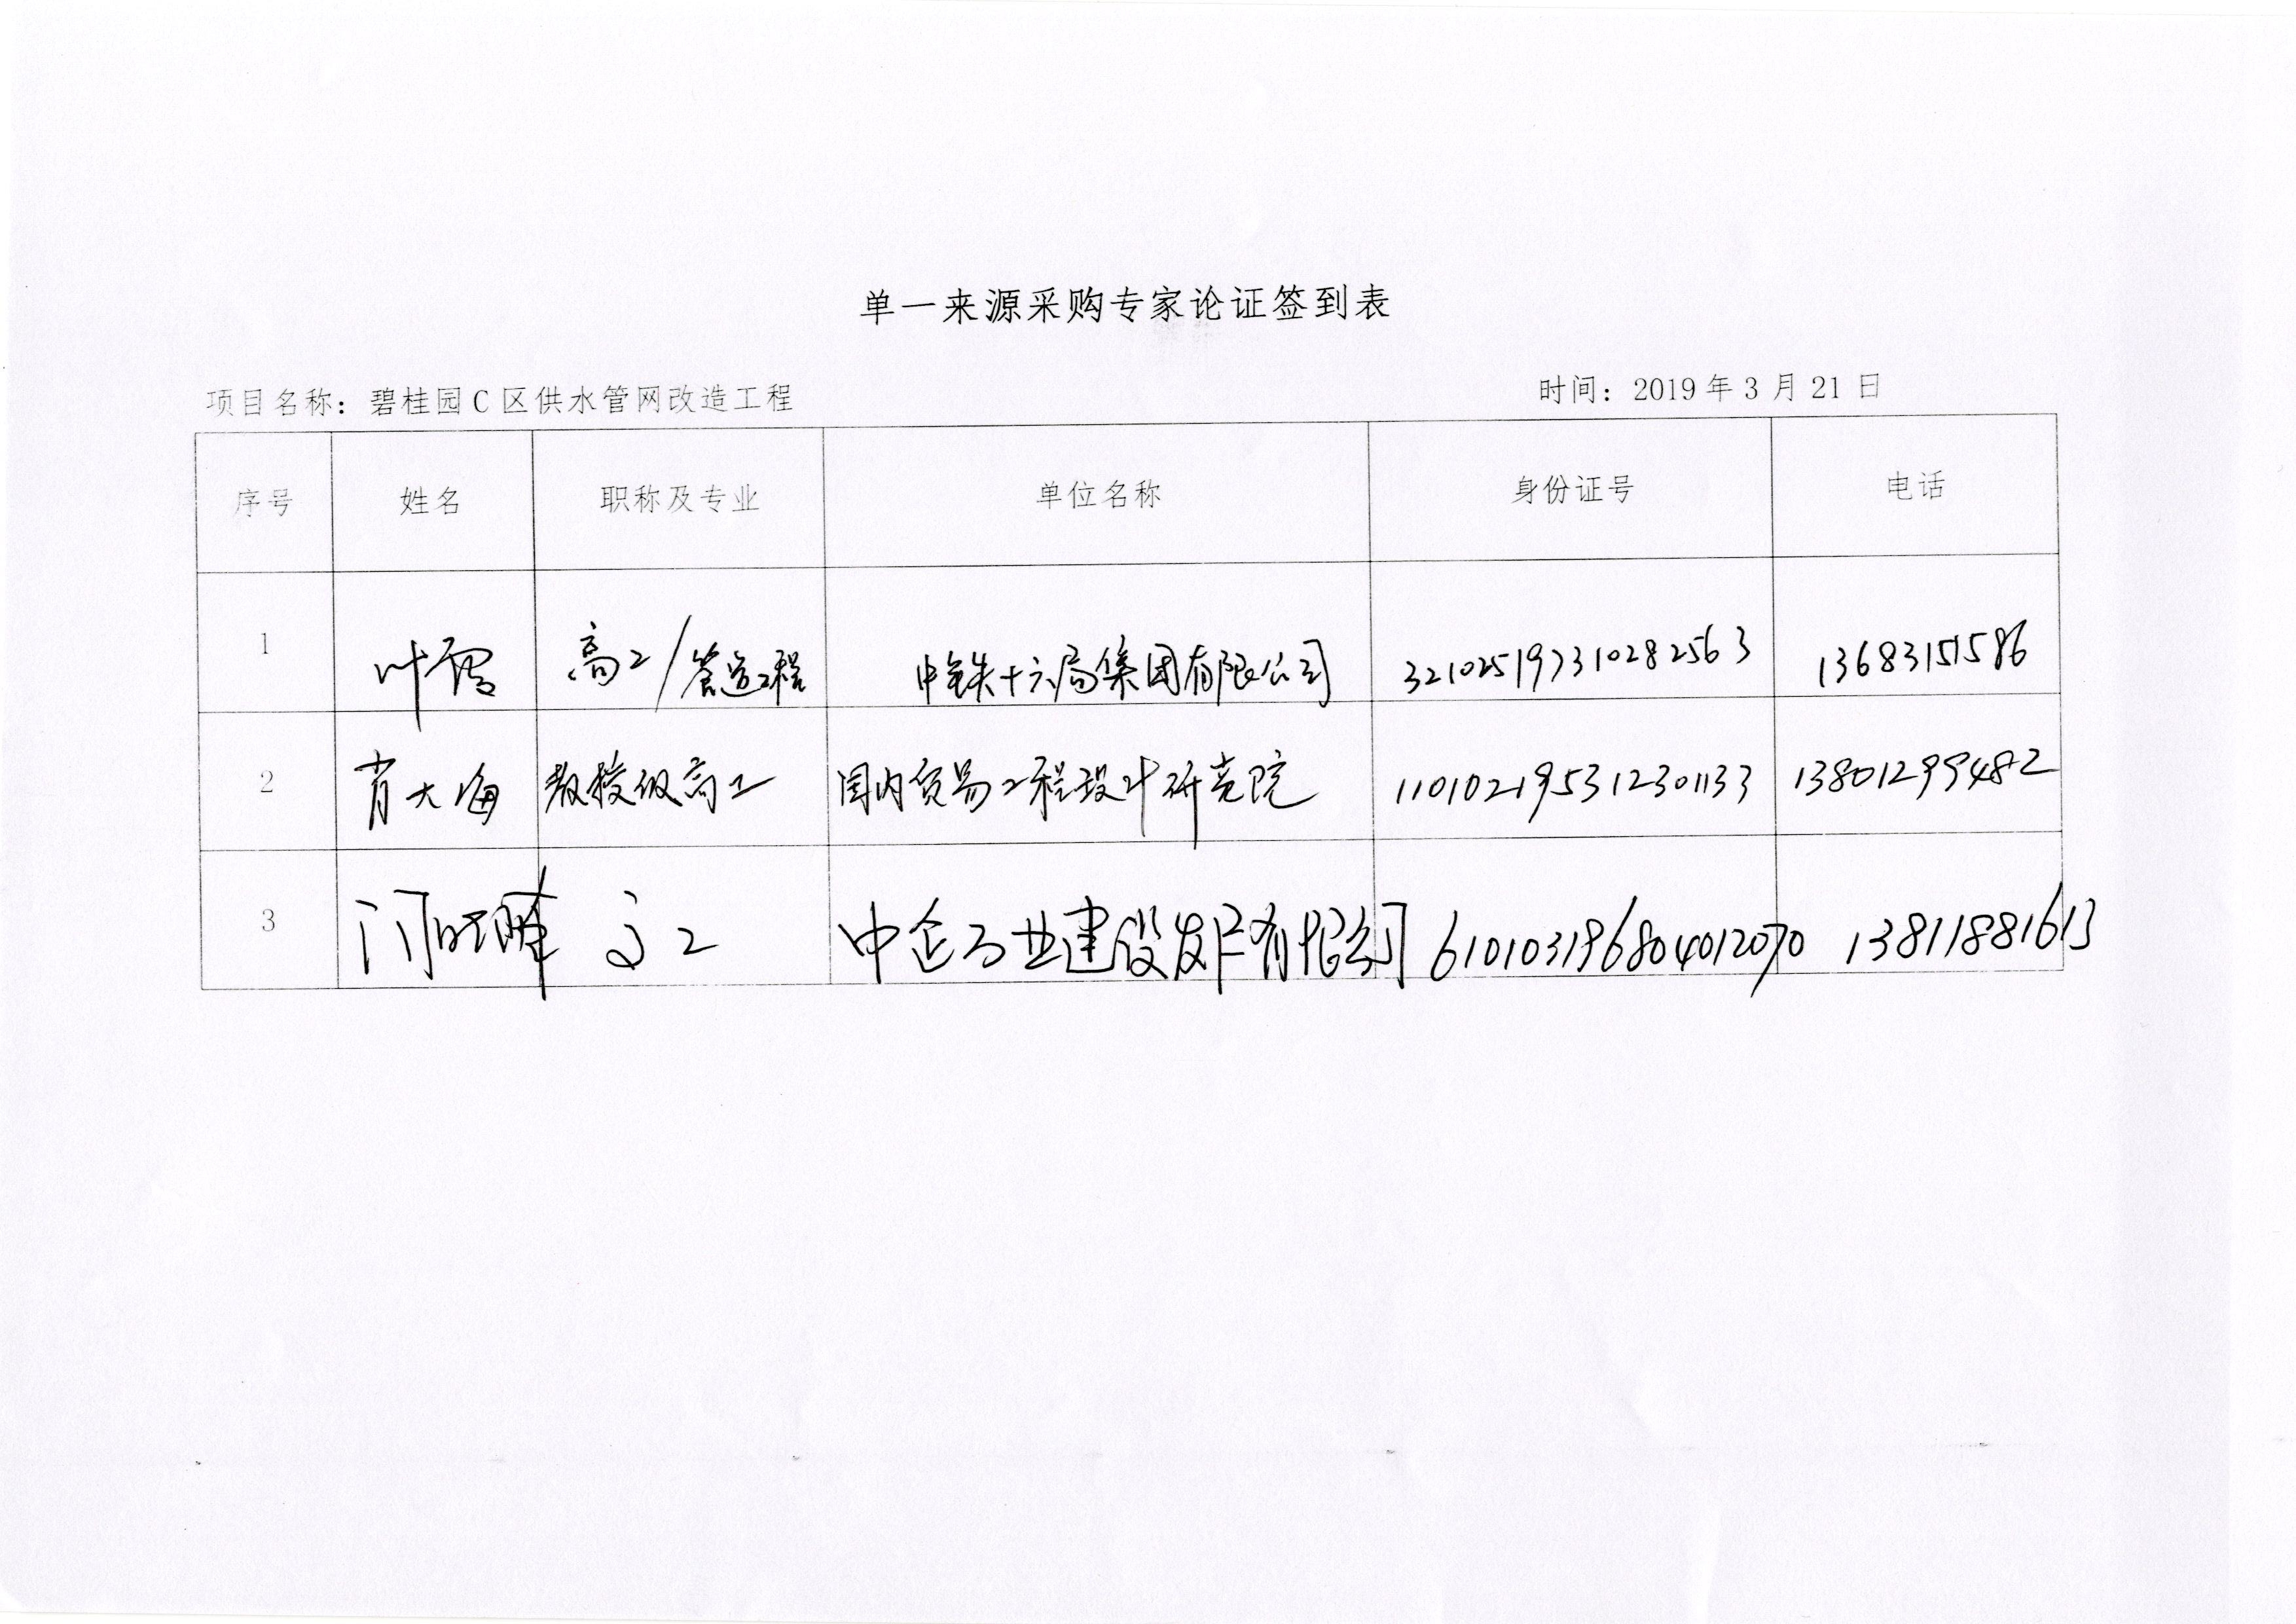 单一来源采购专家论证签到表
项目名称：碧桂园C区供水管网改造工程 时间：2019年3月21日
序号 姓名 职称及专业 单位名称 身份证号 电话
1 叶霞 高工/管道工程 中铁十六局集团有限公司 321025197310282563 13683151586
2 肖大海 教授级高工 国内贸易工程设计研究院 110102195312301133 13801299482
3 高工 中企 建设发展有限公司 610103196804012070 13811881613